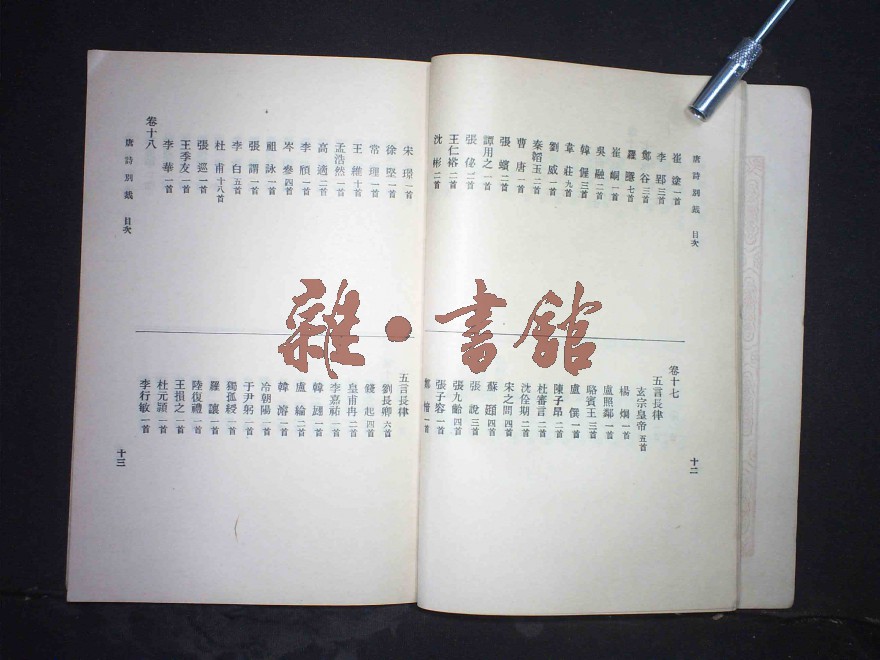 唐詩別裁 目次
崔塗一首
李郢三首
鄭谷三首
羅隱七首
崔峒一首
吳融二首
韓偓三首
韋莊九首
劉威一首
秦韜玉二首
曹唐一首
張蠙二首
譚用之一首
張佖二首
王仁裕二首
沈彬二首
卷十七
五言長律
玄宗皇帝五首
楊烱一首
盧照鄰一首
駱賓王三首
盧僎一首
陳子昂二首
杜審言二首
沈佺期二首
宋之問四首
蘇頲四首
張說三首
張九齡四首
張子容一首
一首
十二
宋璟一首
徐堅一首
常理一首
王維十首
孟浩然一首
高適二首
李頎一首
岑參四首
祖詠一首
張謂一首
李白五首
杜甫十八首
張巡一首
王季友一首
李華一首
卷十八
唐詩別裁 目次
五言長律
劉長卿六首
錢起四首
皇甫冉二首
李嘉祐一首
韓翃一首
盧綸二首
韓濬一首
冷朝陽一首
于尹躬一首
獨孤綬一首
羅讓一首
陸復禮一首
王損之一首
杜元穎一首
李行敏一首
十三
雜·書館